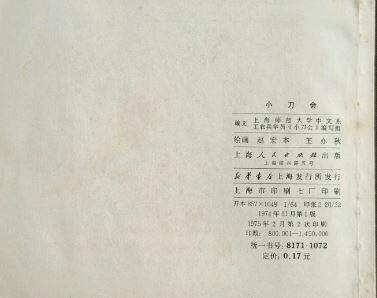 小刀会
编文 上海师范大学中文系
工农兵学员《小刀会》编写组
绘画 赵宏本 王亦秋
上海人民出版社出版
上海绍兴路五号
新华书店上海发行所发行
上海市印刷七厂印刷
开本 857×1048 1/64 印张 2 20/32
1974年11月第1版
1975年2月第2次印刷
印数 800,001—1,450,000
统一书号：8171·1072
定价：0.17元